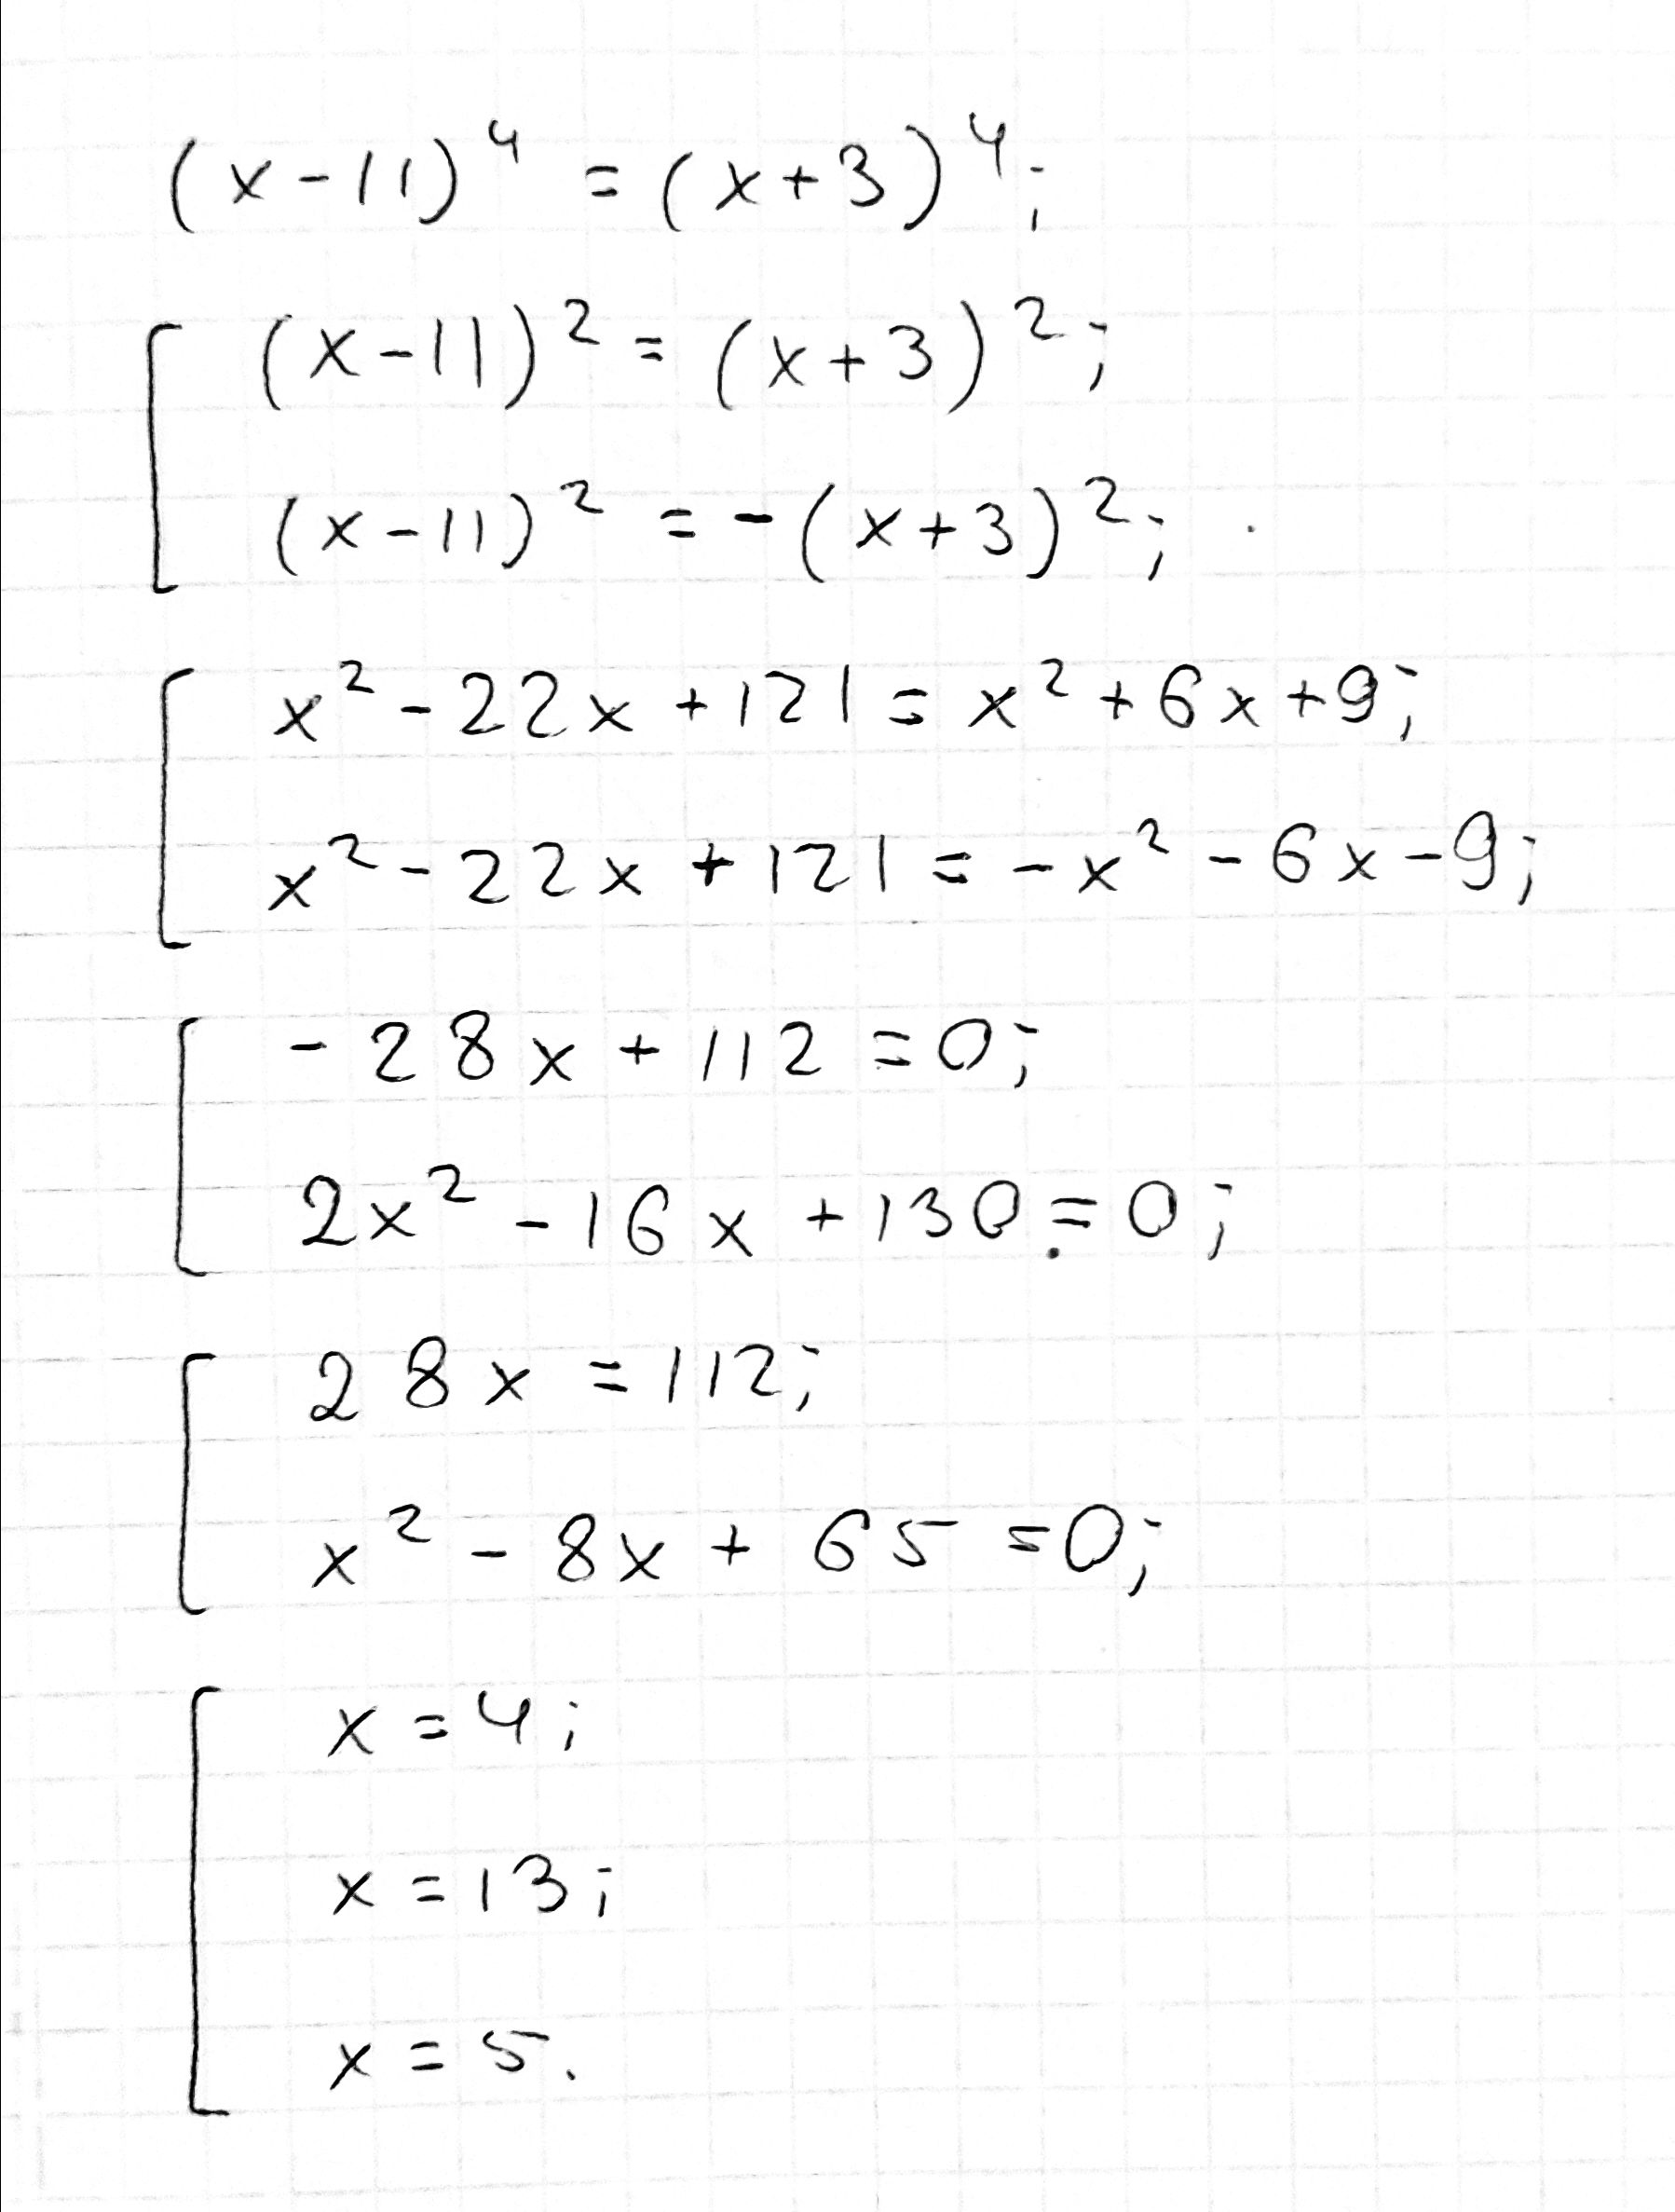 (x-11)⁴ = (x+3)⁴;
(x-11)² = (x+3)²;
(x-11)² = -(x+3)²;
x² - 22x + 121 = x² + 6x + 9;
x² - 22x + 121 = -x² - 6x - 9;
-28x + 112 = 0;
2x² - 16x + 130 = 0;
28x = 112;
x² - 8x + 65 = 0;
x = 4;
x = 13;
x = 5.